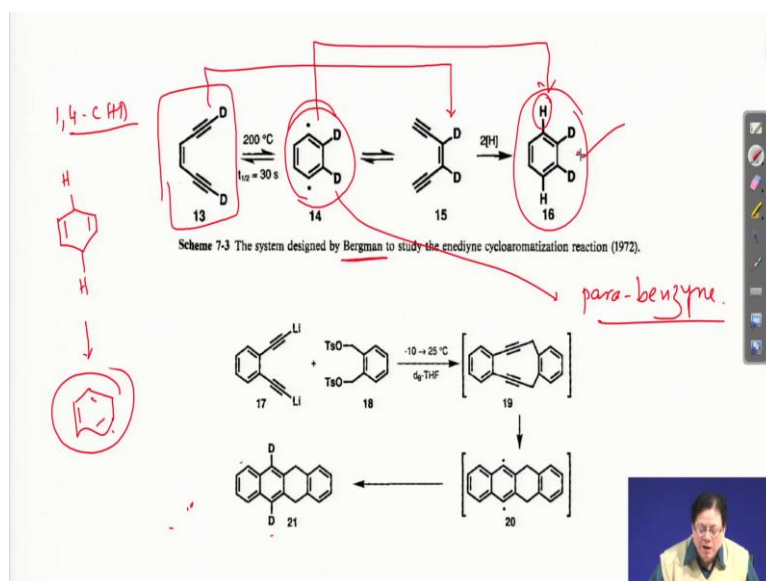 1,4-CHD
H
H
D
D
13
200 °C
t1/2 = 30 s
D
D
14
D
D
15
2[H]
H
D
D
H
16
Scheme 7-3 The system designed by Bergman to study the enediyne cycloaromatization reaction (1972).
para-benzyne.
Li
Li
17
+
TsO
TsO
18
-10 → 25 °C
d8-THF
19
20
D
D
21